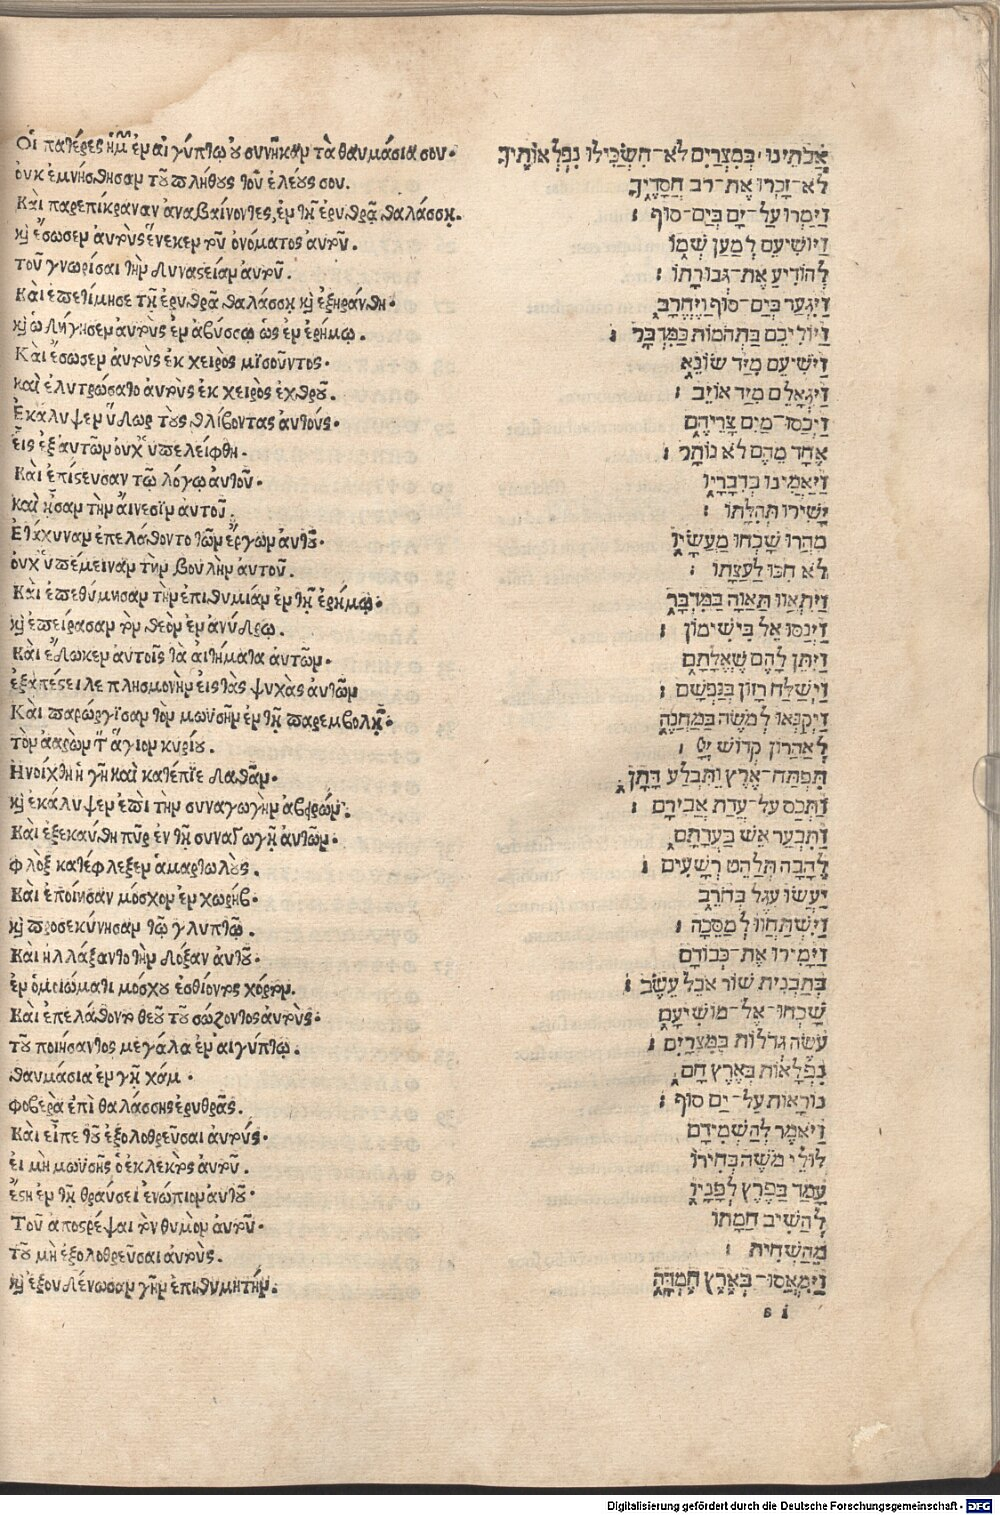 Οἱ πατέρες ἡμ͂ ἐν αἰγύπτῳ ȣ̓ συνῆκαν τὰ θαυμάσια σου·
ὀυκ ἐμνήσθησαν τοῦ πλήθους τοῦ ἐλέους σου.
Καὶ παρεπίκραναν ἀναβαίνοντες, ἐν τῇ ἐρυθρᾷ θαλάσσῃ.
ϗ ἔσωσεν ἀυτοὺς ἕνεκεν τοῦ ὀνόματος ἀυτοῦ.
τοῦ γνωρίσαι τὴν δυναστείαν ἀυτοῦ.
Καὶ ἐπετίμησε τῇ ἐρυθρᾷ θαλάσσῃ ϗ ἐξηράνθη·
ϗ ὡδήγησεν ἀυτοὺς ἐν ἀβύσσῳ ὡς ἐν ἐρήμῳ.
Καὶ ἔσωσεν ἀυτοὺς ἐκ χειρὸς μϊσοῦντος·
καὶ ἐλυτρώσατο ἀυτοὺς ἐκ χειρὸς ἐχθροῦ.
Ἐκάλυψεν ὕδωρ τοὺς θλίβοντας ἀυτούς·
ἐις ἐξ αυτῶν ουχ ὑπελείφθη·
Καὶ ἐπίστευσαν τῷ λόγῳ ἀυτοῦ·
καὶ ᾖσαν τὴν ἄινεσϊν ἀυτοῦ.
Ἐτάχυναν ἐπελάθοντο τῶν ἔργων ἀυτοῦ·
ουχ ὑπέμειναν τὴν βουλὴν ἀυτοῦ.
Καὶ ἐπεθύμησαν τὴν ἐπιθυμίαν ἐν τῇ ἐρήμῳ·
ϗ ἐπείρασαν τὸν θεὸν ἐν ἀνύδρῳ.
Καὶ ἔδωκεν ἀυτοῖς τὰ ἀιτήματα ἀυτῶν·
ἐξαπέστειλε πλησμονὴν εἰς τὰς ψυχὰς ἀυτῶν
Καὶ παρώργϊσαν τὸν μωϋσῆν ἐν τῇ παρεμβολῇ·
τὸν ἀαρὼν τ̀ ἅγιον κυρίου.
Ηνοίχθη ἡ γῆ καὶ κατέπϊε δαθάν·
ϗ ἐκάλυψεν ἐπὶ τὴν συναγωγὴν ἀβηρών·
Καὶ ἐξεκαύθη πῦρ ἐν τῇ συναγωγῇ ἀυτῶν·
φλὸξ κατέφλεξεν ἁμαρτωλούς.
Καὶ ἐποίησαν μόσχον ἐν χωρήβ·
ϗ προσεκύνησαν τῷ γλυπτῷ.
Καὶ ἠλλάξαντο τὴν δόξαν ἀυτοῦ·
ἐν ὁμοιώματι μόσχου ἐσθίοντος χόρτον.
Καὶ ἐπελάθοντο θεοῦ τοῦ σώζοντος ἀυτούς·
τοῦ ποιήσαντος μεγάλα ἐν αἰγύπτῳ.
θαυμάσια ἐν γῇ χάμ ·
φοβερὰ ἐπὶ θαλάσσης ἐρυθρᾶς.
Καὶ εἶπε τοῦ ἐξολοθρεῦσαι ἀυτούς·
ἐι μὴ μωϋσῆς ὁ ἐκλεκτὸς ἀυτοῦ.
ἔστη ἐν τῇ θραύσει ἐνώπιον ἀυτοῦ·
Τοῦ ἀποστρέψαι τὸν θυμὸν ἀυτοῦ·
τοῦ μὴ ἐξολοθρεῦσαι ἀυτούς.
ϗ ἐξουδένωσαν γῆν ἐπιθυμητήν·
אֲבֹתֵינוּ בְּמִצְרַיִם לֹא־הִשְׂכִּילוּ נִפְלְאוֹתֶיךָ
לֹא־זָכְרוּ אֶת־רֹב חֲסָדֶיךָ
וַיַּמְרוּ עַל־יָם בְּיַם־סוּף ׃
וַיּוֹשִׁיעֵם לְמַעַן שְׁמוֹ
לְהוֹדִיעַ אֶת־גְּבוּרָתוֹ ׃
וַיִּגְעַר בְּיַם־סוּף וַיֶּחֱרָב
וַיּוֹלִיכֵם בַּתְּהֹמוֹת כַּמִּדְבָּר ׃
וַיּשִׁיעֵם מִיַּד שׂוֹנֵא
וַיִּגְאָלֵם מִיַּד אוֹיֵב ׃
וַיְכַסּוּ־מַיִם צָרֵיהֶם
אֶחָד מֵהֶם לֹא נוֹתָר ׃
וַיַּאֲמִינוּ בִדְבָרָיו
יָשִׁירוּ תְּהִלָּתוֹ ׃
מִהֲרוּ שָׁכְחוּ מַעֲשָׂיו
לֹא חִכּוּ לַעֲצָתוֹ ׃
וַיִּתְאַוּוּ תַאֲוָה בַּמִּדְבָּר
וַיְנַסּוּ אֵל בִּישִׁימוֹן ׃
וַיִּתֵּן לָהֶם שֶׁאֱלָתָם
וַיְשַׁלַּח רָזוֹן בְּנַפְשָׁם ׃
וַיְקַנְאוּ לְמֹשֶׁה בַּמַּחֲנֶה
לְאַהֲרֹן קְדוֹשׁ יְיָ ׃
תִּפְתַּח־אֶרֶץ וַתִּבְלַע דָּתָן
וַתְּכַס עַל־עֲדַת אֲבִירָם ׃
וַתִּבְעַר אֵשׁ בַּעֲדָתָם
לֶהָבָה תְּלַהֵט רְשָׁעִים ׃
יַעֲשׂוּ עֵגֶל בְּחֹרֵב
וַיִּשְׁתַּחֲווּ לְמַסֵּכָה ׃
וַיָּמִירוּ אֶת־כְּבוֹדָם
בְּתַבְנִית שׁוֹר אֹכֵל עֵשֶׂב ׃
שָׁכְחוּ אֵל־מוֹשִׁיעָם
עֹשֶׂה גְדֹלוֹת בְּמִצְרָיִם ׃
נִפְלָאוֹת בְּאֶרֶץ חָם
נוֹרָאוֹת עַל־יַם סוּף ׃
וַיֹּאמֶר לְהַשְׁמִידָם
לוּלֵי מֹשֶׁה בְחִירוֹ
עָמַד בַּפֶּרֶץ לְפָנָיו
לְהָשִׁיב חֲמָתוֹ
מֵהַשְׁחִית ׃
וַיִּמְאֲסוּ־בְּאֶרֶץ חֶמְדָּה
Digitalisierung gefördert durch die Deutsche Forschungsgemeinschaft · DFG